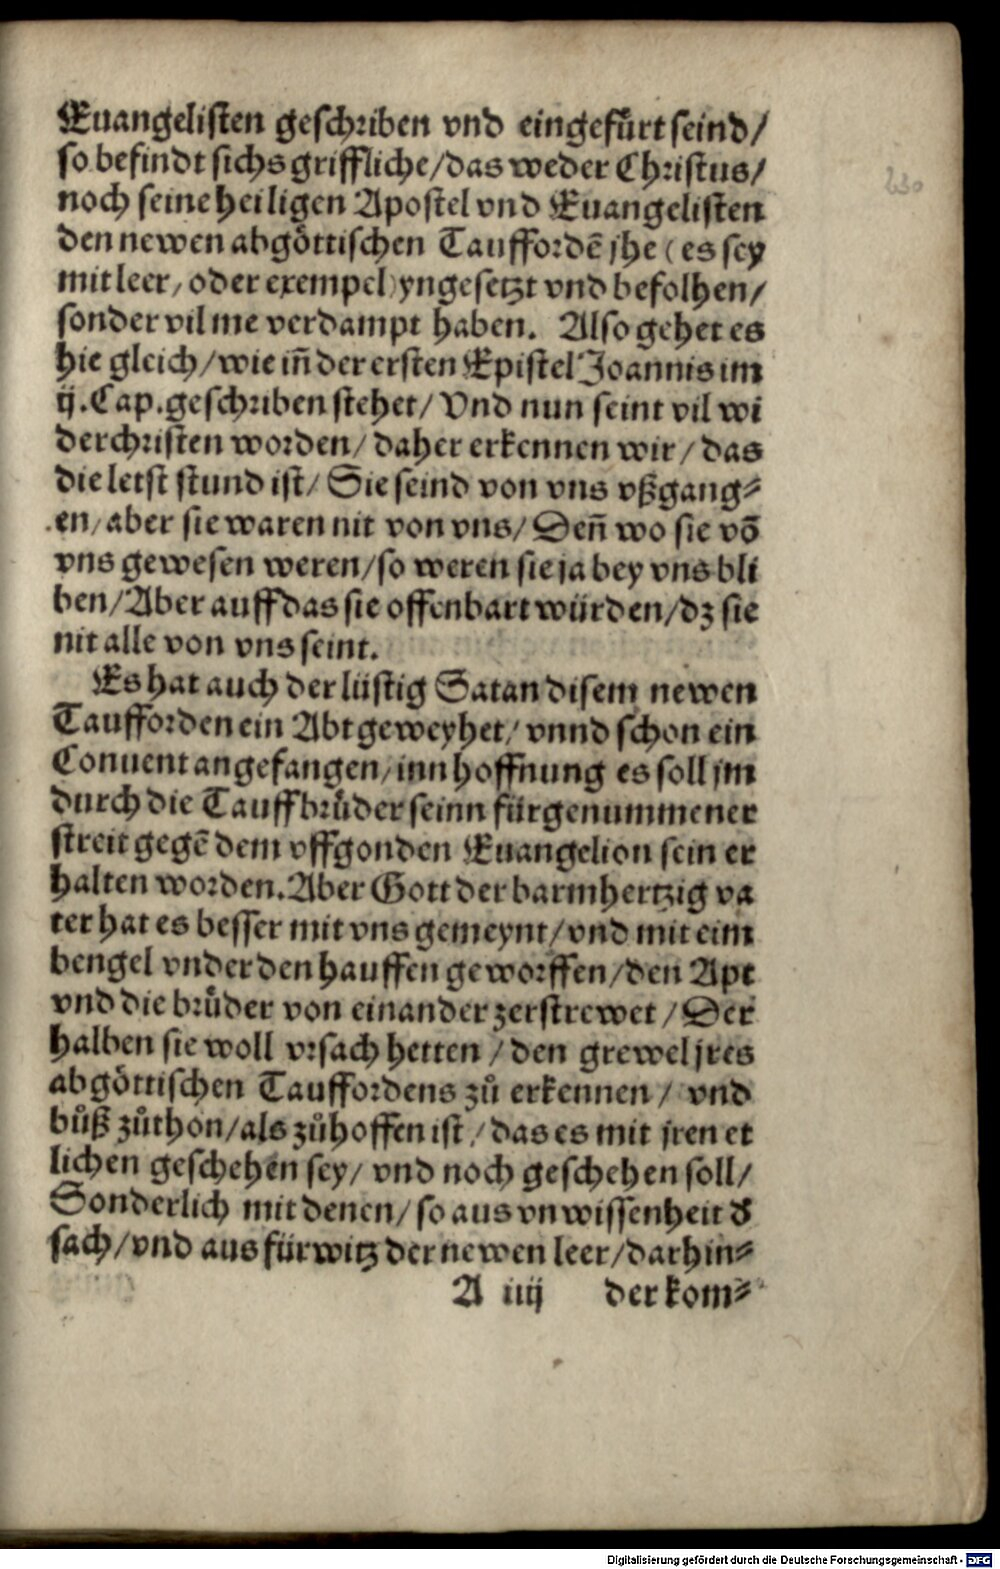 Euangelisten geschriben vnd eingefürt seind/
so befindt sichs griffliche/das weder Christus/
noch seine heiligen Apostel vnd Euangelisten
den newen abgöttischen Tauffordē jhe (es sey
mit leer, oder exempel) yngesetzt vnd befolhen/
sonder vil me verdampt haben. Also gehet es
hie gleich/wie in̄ der ersten Epistel Joannis im
ij.Cap.geschriben stehet/ Vnd nun seint vil wi
derchristen worden/ daher erkennen wir/ das
die letst stund ist/ Sie seind von vns vßgang⸗
en/aber sie waren nit von vns/ Den̄ wo sie vō
vns gewesen weren/so weren sie ja bey vns bli
ben/Aber auff das sie offenbart würden/dz sie
nit alle von vns seint.
Es hat auch der lüstig Satan disem newen
Taufforden ein Abt geweyhet/ vnnd schon ein
Conuent angefangen/inn hoffnung es soll jm
durch die Tauffbrůder seinn fürgenummener
streit gegē dem vffgonden Euangelion sein er
halten worden.Aber Gott der barmhertzig va
ter hat es besser mit vns gemeynt/vnd mit eim
bengel vnder den hauffen geworffen/den Apt
vnd die brůder von einander zerstrewet/Der
halben sie woll vrsach hetten/den grewel jres
abgöttischen Tauffordens zů erkennen/ vnd
bůß zůthon/als zůhoffen ist/das es mit jren et
lichen geschehen sey/ vnd noch geschehen soll/
Sonderlich mit denen/so aus vnwissenheit d̕
sach/vnd aus fürwitz der newen leer/darhin⸗
A iiij der kom⸗
230
Digitalisierung gefördert durch die Deutsche Forschungsgemeinschaft - DFG